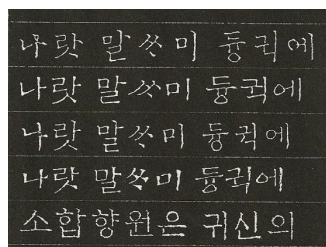 나랏 말쓰미 듕귁에
나랏 말쓰미 듕귁에
나랏 말쓰미 듕귁에
나랏 말쓰미 듕귁에
소합향원은 귀신의